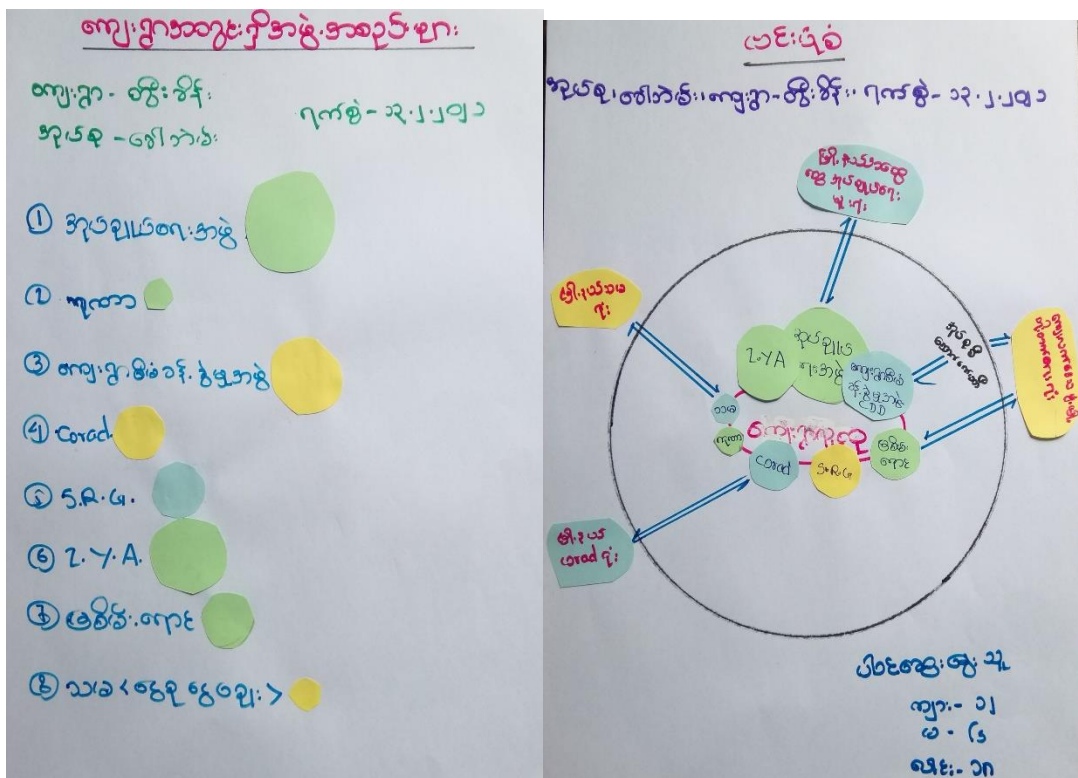 ကျေးရွာအတွင်းရှိအဖွဲ့အစည်းများ
ကျေးရွာ - တွီးစိန်း
အုပ်စု - ခေါဘဲမ်း
ရက်စွဲ - ၁၃.၂.၂၀၂၁
① အုပ်ချုပ်ရေးအဖွဲ့
② ကုထာ
③ ကျေးရွာစီမံခန့်ခွဲမှုအဖွဲ့
④ Corad
⑤ S.R.G.
⑥ Z.Y.A.
⑦ မြစိမ်းရောင်
⑧ သမခ < ငွေစု ငွေချေး >
ဗင်းပုံစံ
ကျေးရွာ - တွီးစိန်း
ရက်စွဲ - ၁၃.၂.၂၀၂၁
မြို့နယ်အထွေထွေအုပ်ချုပ်ရေးမှူးရုံး
Z.Y.A
အုပ်ချုပ်ရေးအဖွဲ့
ကျေးရွာစီမံခန့်ခွဲမှုအဖွဲ့
CDD
ကျေးရွာလူထု
ကုထာ
Corad
S.R.G
မြစိမ်းရောင်
မြို့နယ်
corad ရုံး
ပါဝင်ဆွေးနွေးသူ
ကျား - ၁၂
မ - ၆
ပေါင်း - ၁၈